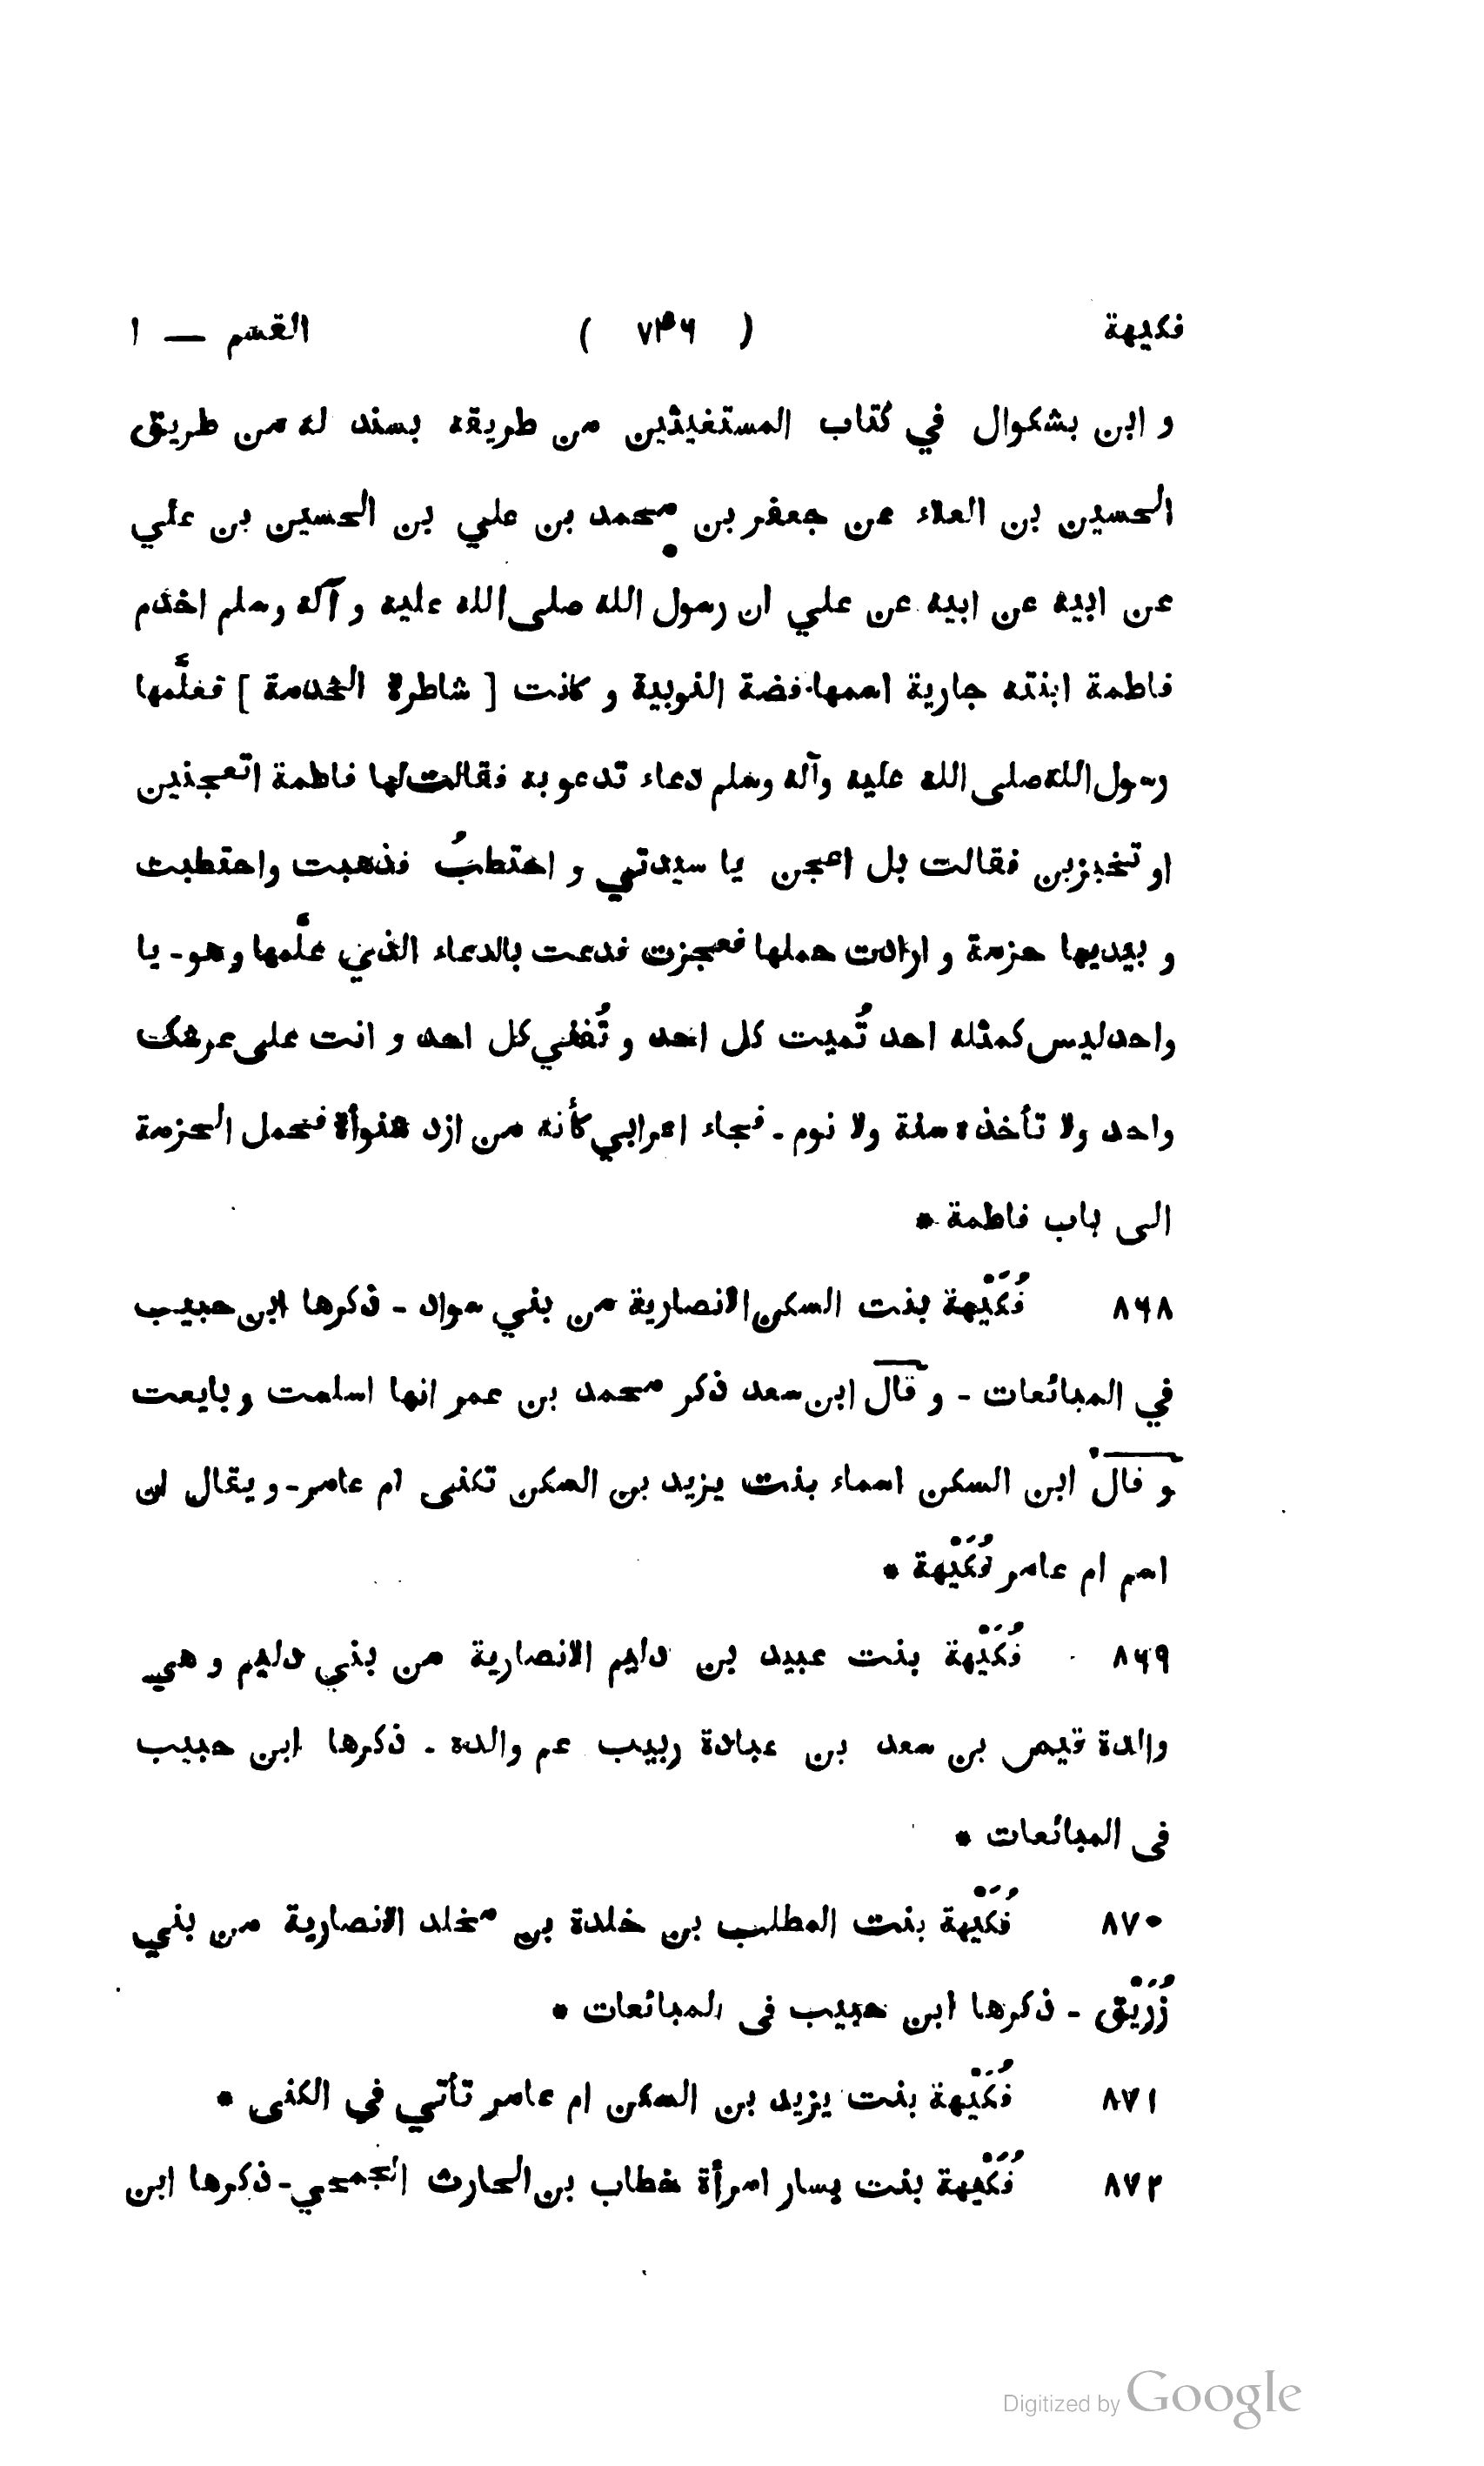 فكيهة ( ٧٣٦ ) القسم — ١
و ابن بشكوال في كتاب المستغيثين من طريقه بسند له من طريق
الحسين بن العلاء عن جعفر بن محمد بن علي بن الحسين بن علي
عن ابيه عن ابيه عن علي ان رسول الله صلى الله عليه و آله وسلم اخدم
فاطمة ابنته جارية اسمها فضة النوبية و كانت [ شاطرة الخدمة ] فعلَّمها
رسول الله صلى الله عليه وآله وسلم دعاء تدعو به فقالت لها فاطمة اتعجنين
او تخبزين فقالت بل اعجن يا سيدتي و احتطبُ فذهبت واحتطبت
و بيديها حزمة و ارادت حملها فعجزت فدعت بالدعاء الذي علَّمها وهو - يا
واحد ليس كمثله احد تُميت كل احد و تُفني كل احد و انت على عرشك
واحد ولا تأخذه سنة ولا نوم - فجاء اعرابي كأنه من ازد شنوأة فحمل الحزمة
الى باب فاطمة *
٨٦٨ فُكَيْهة بنت السكن الانصارية من بني سواد - ذكرها ابن حبيب
في المبائعات - و قال ابن سعد ذكر محمد بن عمر انها اسلمت و بايعت
و قال ابن السكن اسماء بنت يزيد بن السكن تكنى ام عامر - و يقال ان
اسم ام عامر فُكَيْهة *
٨٦٩ فُكَيْهة بنت عبيد بن دليم الانصارية من بني دليم و هي
والدة قيس بن سعد بن عبادة ربيب عم والده - ذكرها ابن حبيب
فى المبائعات *
٨٧٠ فُكَيْهة بنت المطلب بن خلدة بن مخلد الانصارية من بني
زُرَيْق - ذكرها ابن حبيب فى المبائعات *
٨٧١ فُكَيْهة بنت يزيد بن السكن ام عامر تأتي في الكنى *
٨٧٢ فُكَيْهة بنت يسار امرأة خطاب بن الحارث الجمحي - ذكرها ابن
Digitized by Google